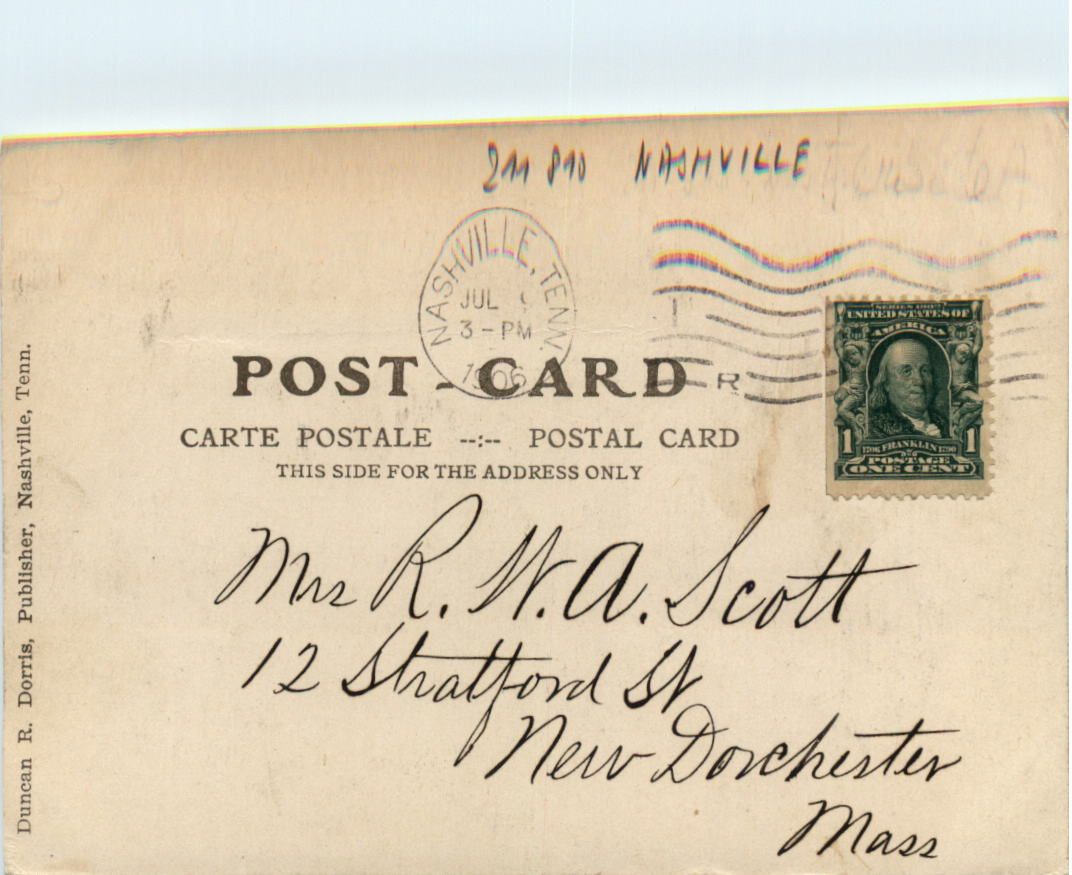 211 810 NASHVILLE
NASHVILLE, TENN.
JUL
3 - PM
1906
R
SERIES 1902
UNITED STATES OF
AMERICA
1 1
1706 FRANKLIN 1790
POSTAGE
ONE CENT
POST-CARD
CARTE POSTALE --:-- POSTAL CARD
THIS SIDE FOR THE ADDRESS ONLY
Mrs R. W. A. Scott
12 Stratford St
New Dorchester
Mass
Duncan R. Dorris, Publisher, Nashville, Tenn.